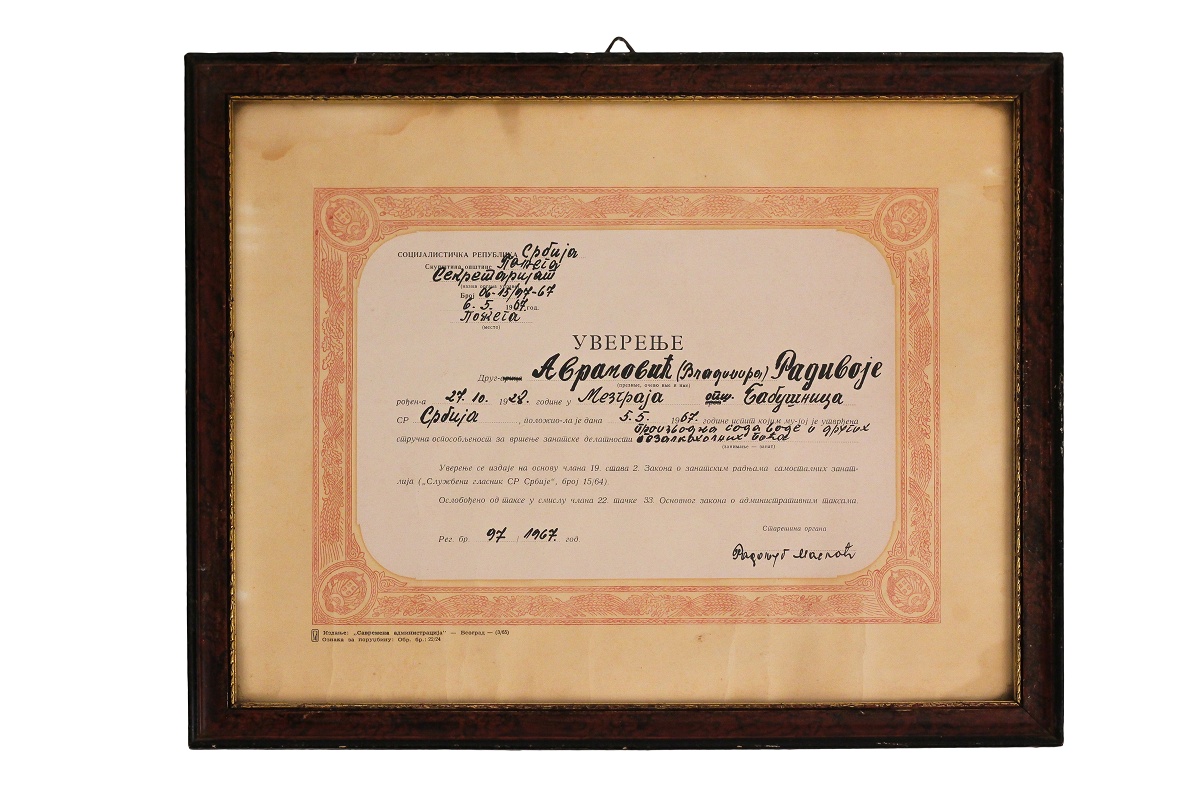 СОЦИЈАЛИСТИЧКА РЕПУБЛИКА Србија
Скупштина општине Пожега
Секретаријат
Број 06-15/97-67
6. 5. 1967. год.
Пожега
(место)
УВЕРЕЊЕ
Друг-арица Аврамовић (Владимира) Радивоје
(презиме, очево име и име)
рођен-а 27. 10. 1928. године у Мезграја општ. Бабушница
СР Србија, положио-ла је дана 5. 5. 1967. године испит којим му-јој је утврђена
производња сода воде и других
стручна оспособљеност за вршење занатске делатности безалкохолних пића
(занимање — занат)
Уверење се издаје на основу члана 19. става 2. Закона о занатским радњама самосталних занат-
лија („Службени гласник СР Србије“, број 15/64).
Ослобођено од таксе у смислу члана 22. тачке 33. Основног закона о административним таксама.
Старешина органа
Рег. бр. 97 / 1967. год.
Издање: „Савремена администрација“ — Београд — (3/65)
Ознака за поруџбину: Обр. бр.: 22/24